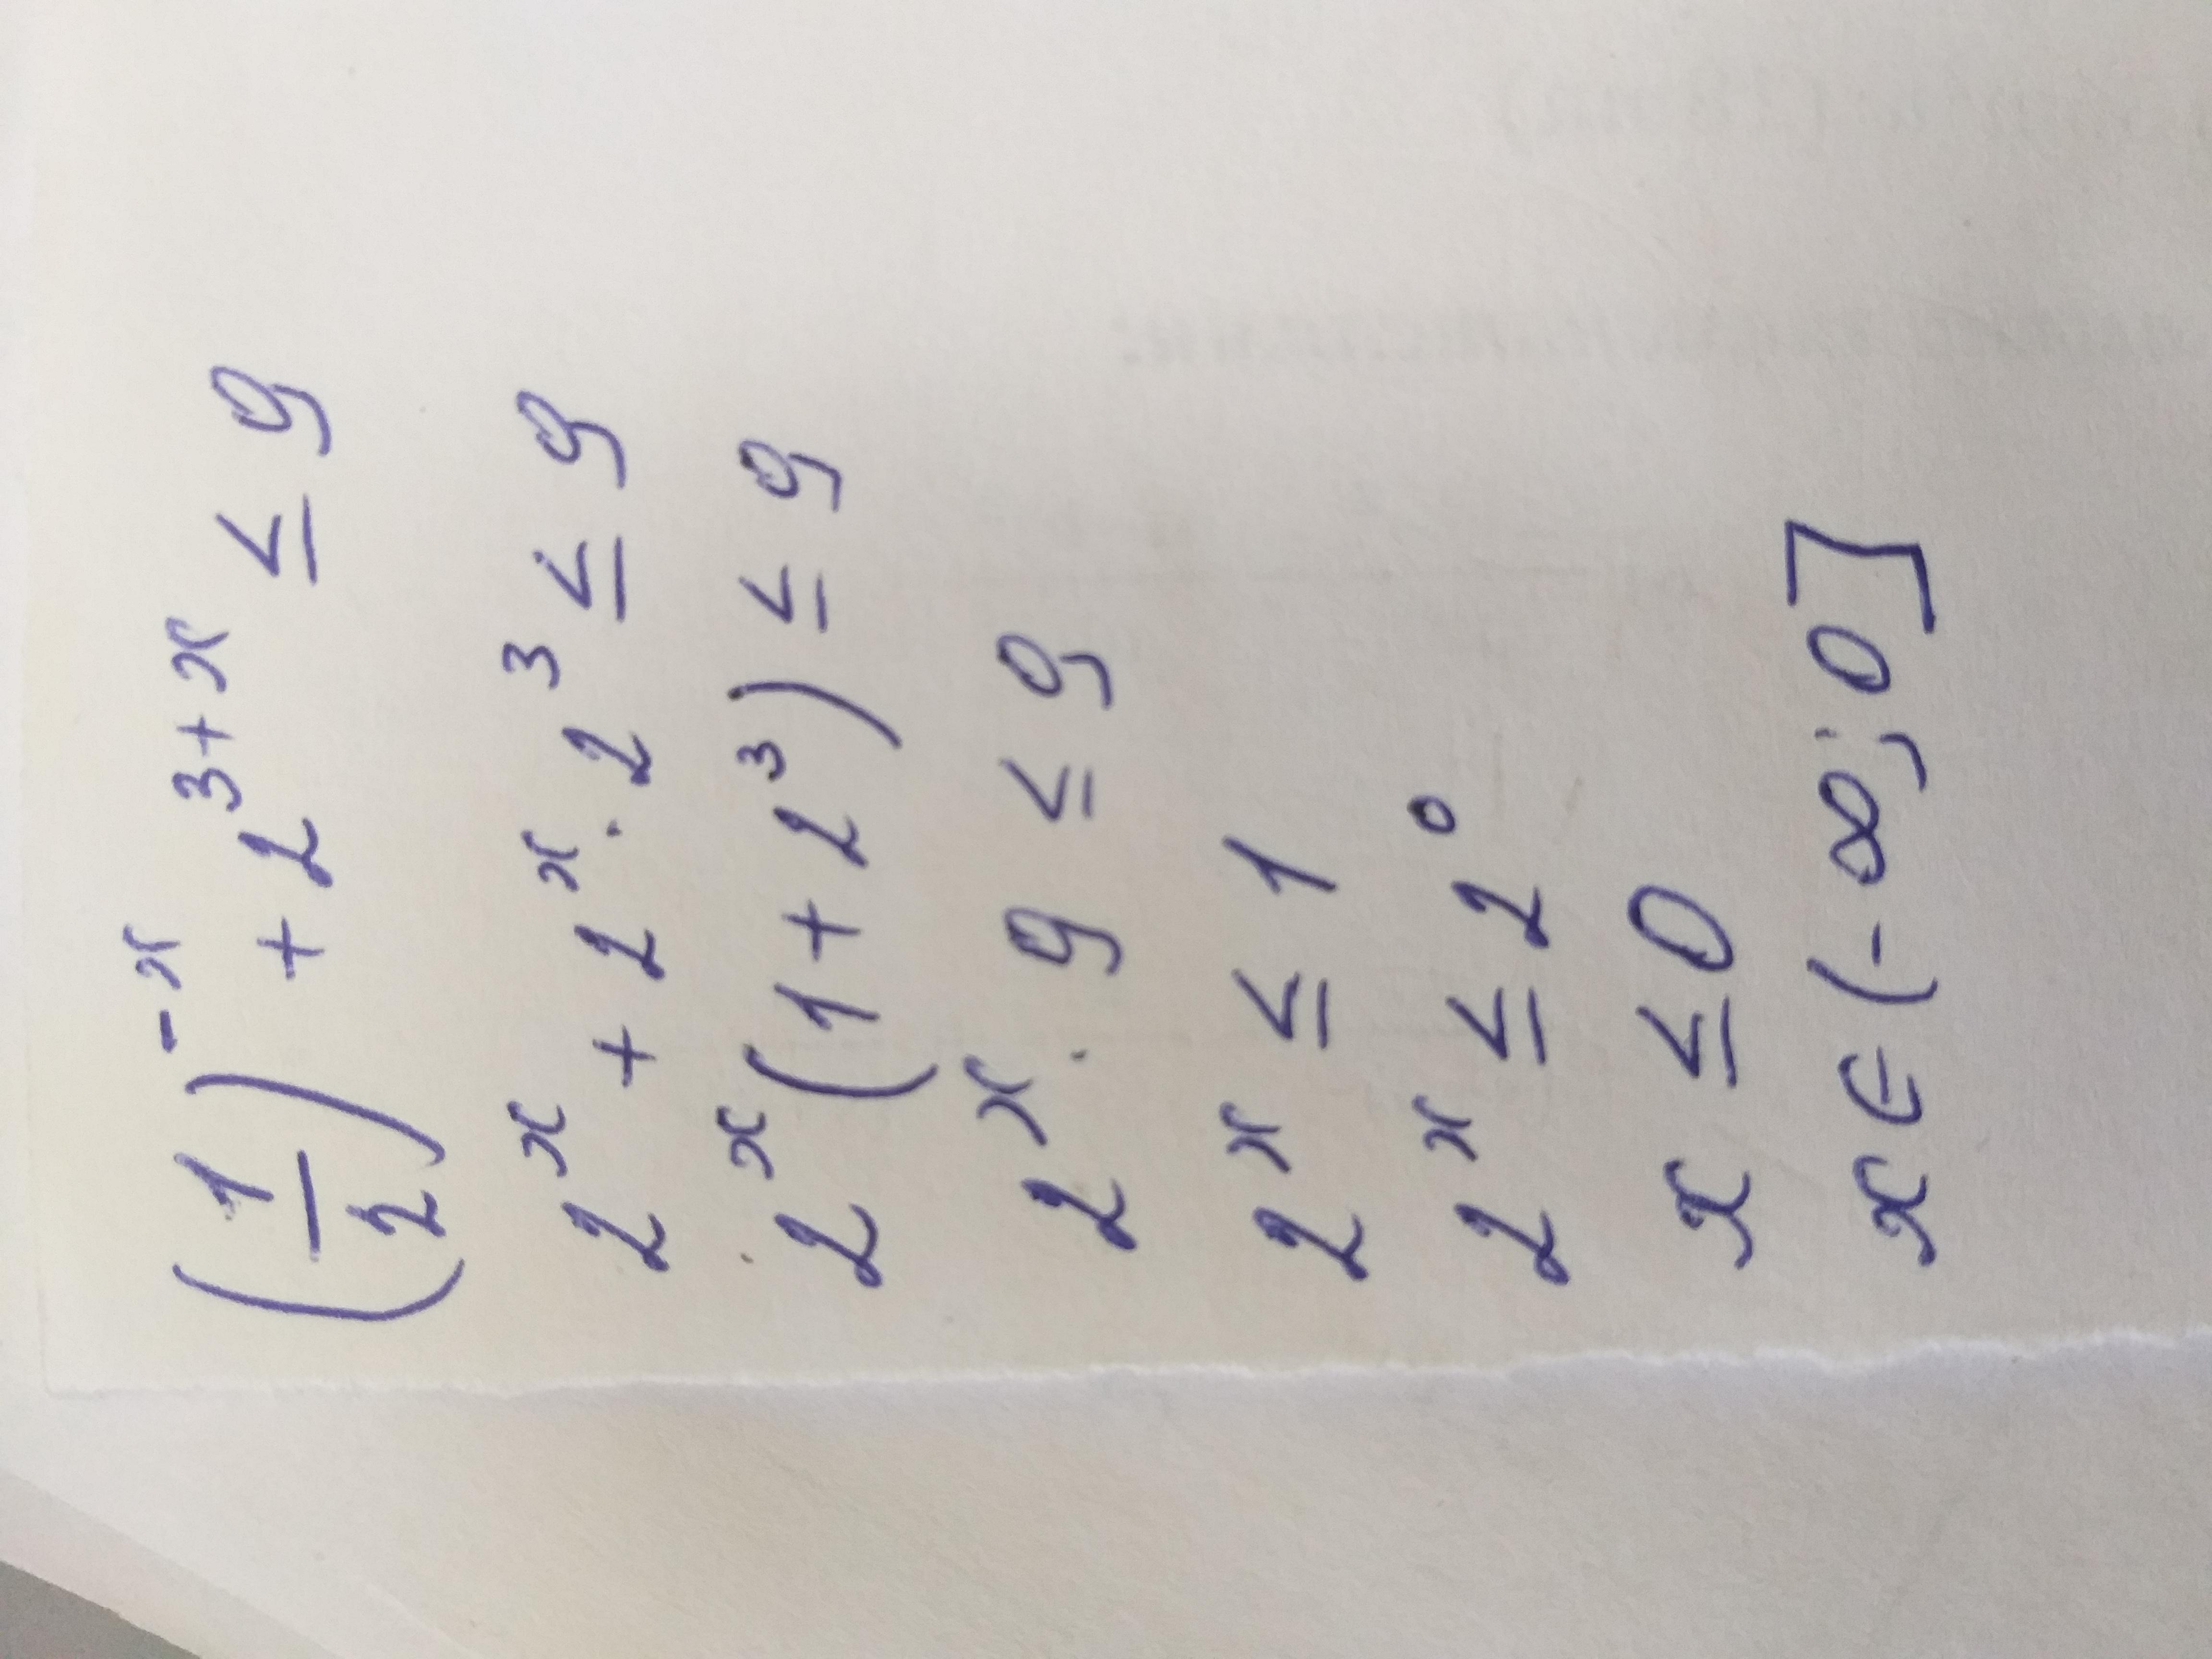 (1/2)^-x + 2^3+x ≤ 9
2^x + 2^x · 2^3 ≤ 9
2^x (1 + 2^3) ≤ 9
2^x · 9 ≤ 9
2^x ≤ 1
2^x ≤ 2^0
x ≤ 0
x ∈ (-∞; 0]